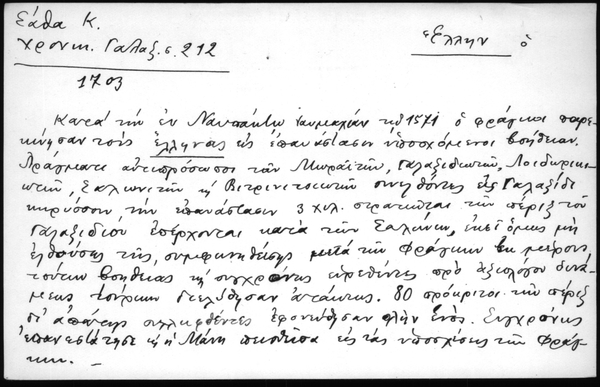 Σάθα Κ.
Χρονικ. Γαλαξ. σ. 212
Ἕλλην ὁ
1703
Κατά τήν ἐν Ναυπάκτῳ ναυμαχίαν τῷ 1571 ὁ φράγκοι παρε-
κίνησαν τούς ἕλληνας εἰς ἐπανάστασιν ὑποσχόμενοι βοήθειαν.
Πράγματι ἀντιπρόσωποι τῶν Μωραϊτῶν, Γαλαξιδιωτῶν, Λοιδωρικι-
ωτῶν, Σαλωνιτῶν κ Βιτρινιτσιωτῶν συνελθόντες εἰς Γαλαξίδι
κηρύσσουν τήν ἐπανάστασιν 3 χιλ. στρατιῶται τῶν πέριξ τοῦ
Γαλαξιδίου ἐπέρχονται κατά τῶν Σαλώνων, ἐκεῖ ὅμως μή
ἐλθούσης τῆς συμφωνηθείσης μετά τῶν Φράγκων ἐκ μέρους
τούτων βοηθείας κ συγχρόνως εὑρεθέντες πρό ἀξιολόγου δυνά-
μεως τούρκων διελύθησαν ἀτάκτως. 80 πρόκριτοι τῶν πέριξ
δι' ἀπάτης συλληφθέντες ἐφονεύθησαν πλήν ἑνός. Συγχρόνως
ἐπανεστάτησε κ ἡ Μάνη πεισθεῖσα εἰς τάς ὑποσχέσεις τῶν Φράγ-
κων. –